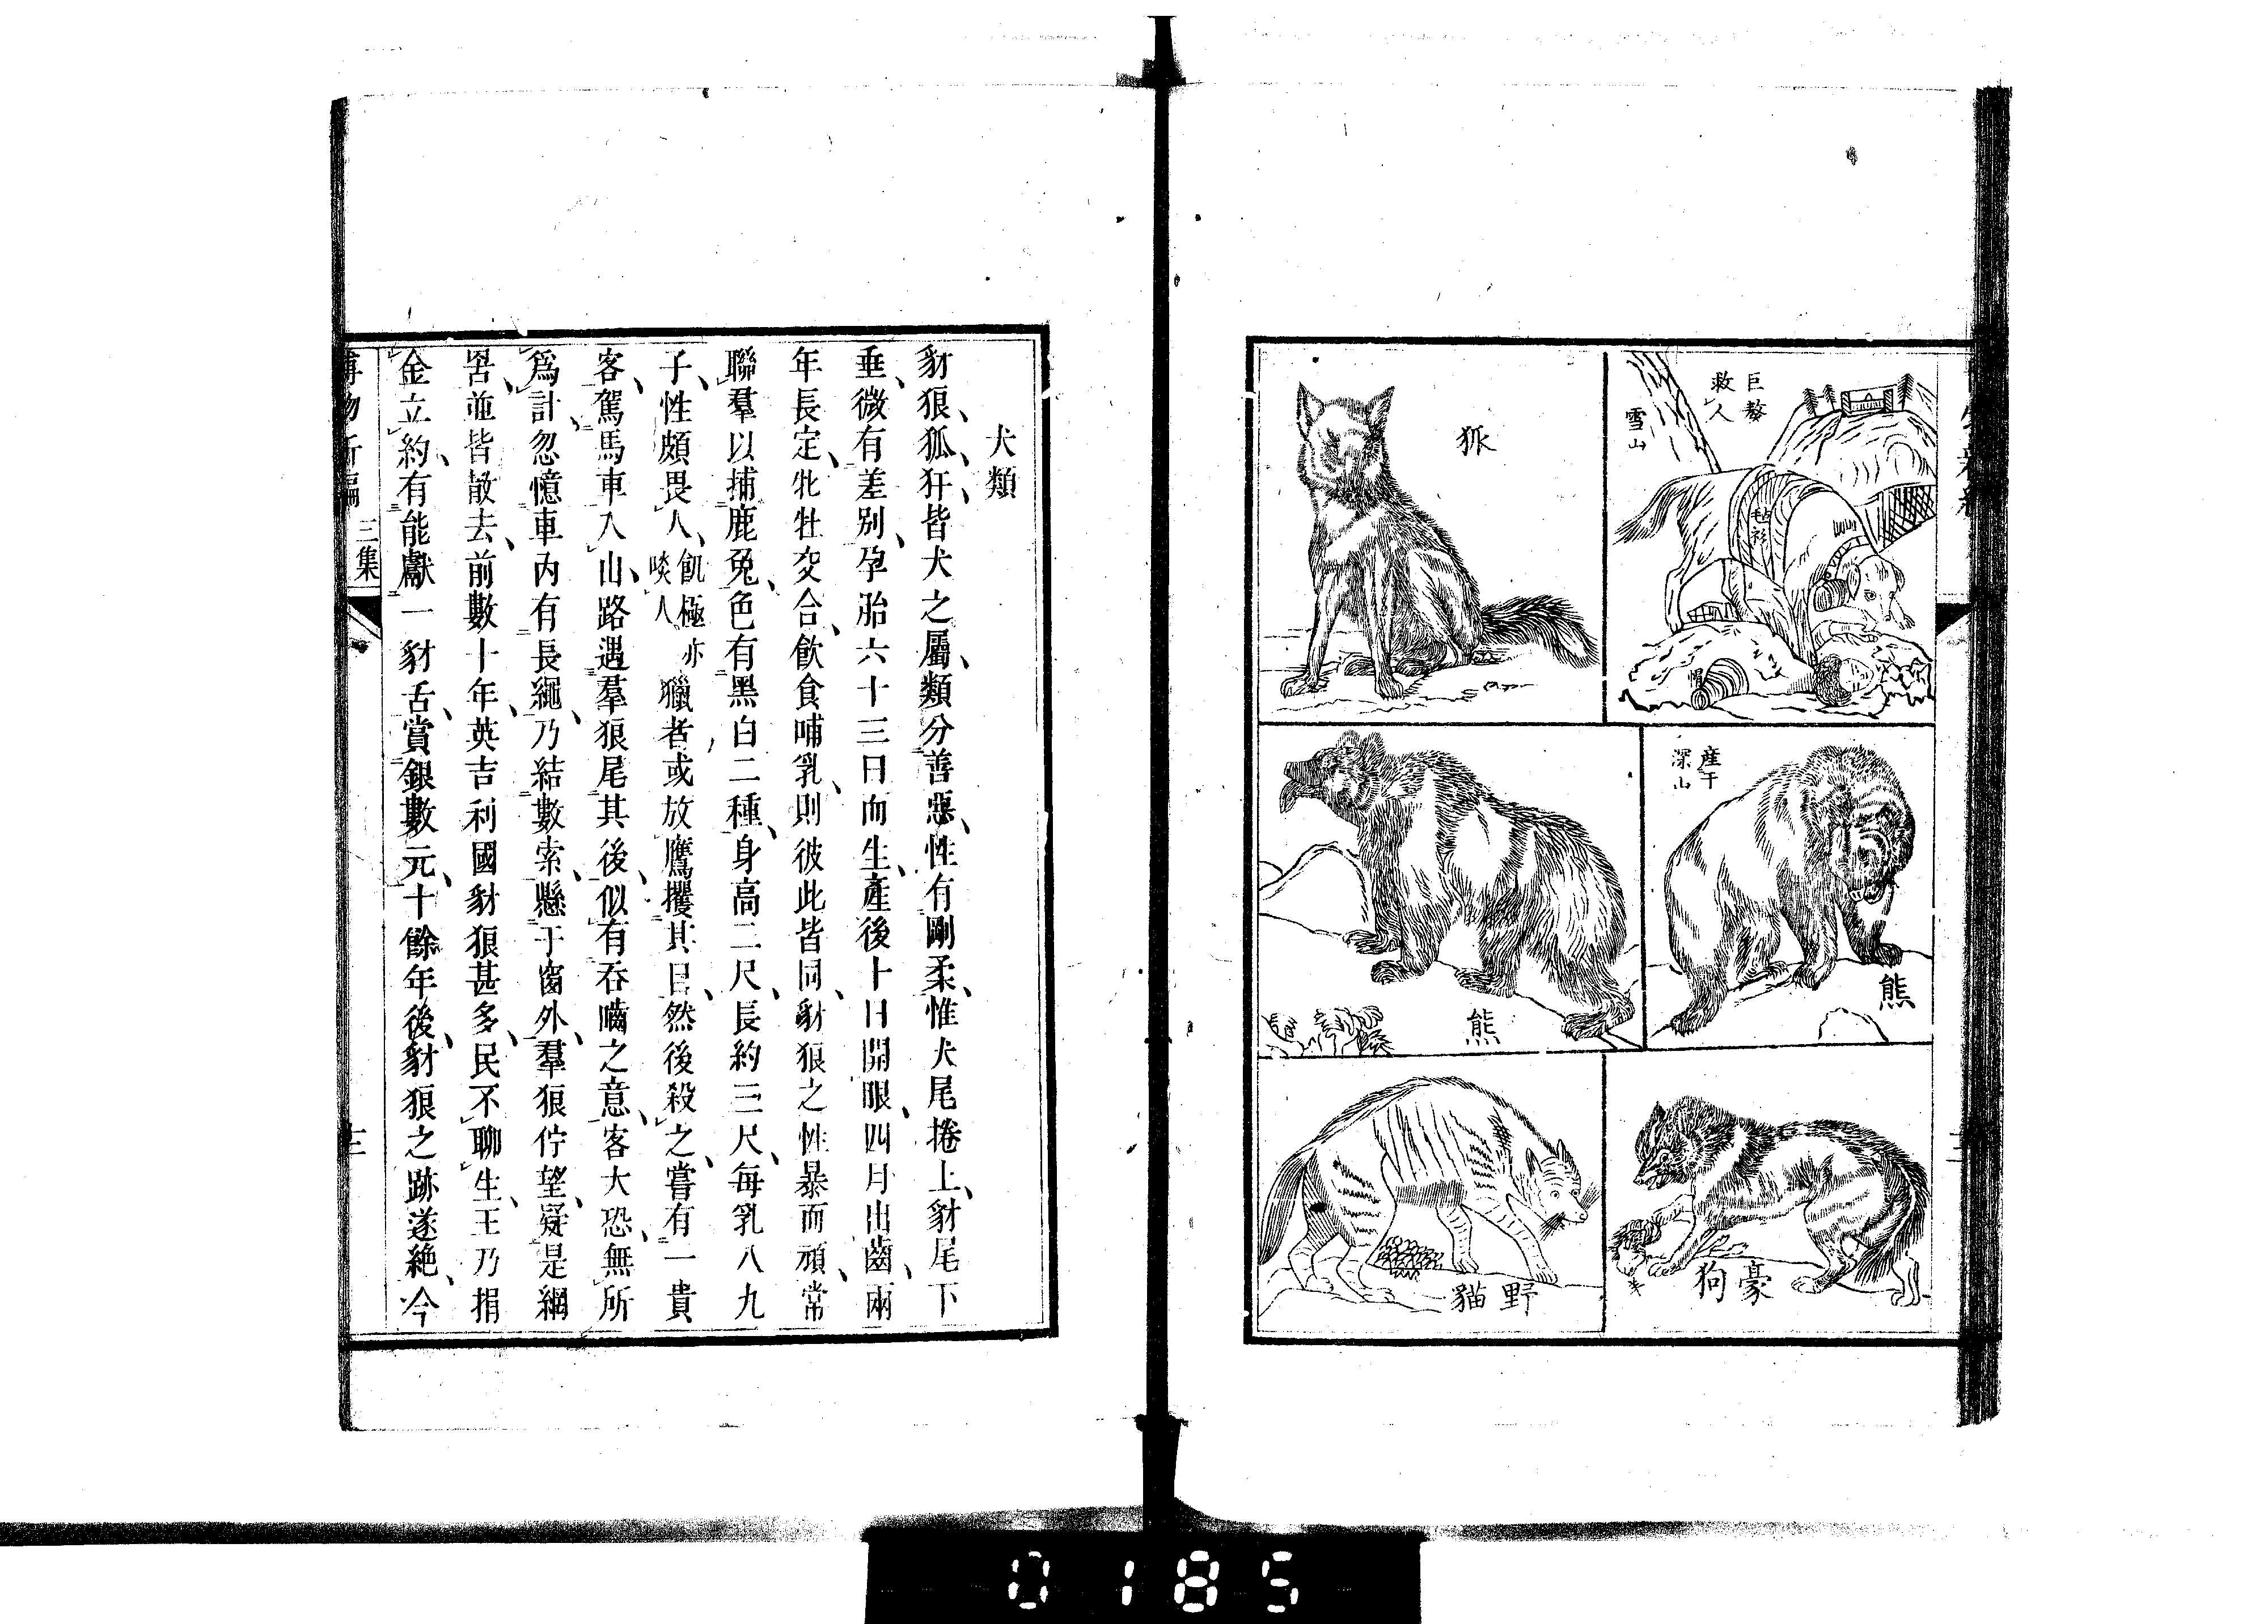 巨獒
救人
雪山
毡衫
狐
產于
深山
熊
熊
豪狗
野貓
犬類
豺狼、狐、犴、皆犬之屬、類分善惡、性有剛柔、惟犬尾捲上、豺尾下
垂、微有差別、孕胎六十三日而生、產後十日開眼、四月出齒、兩
年長定、牝牡交合、飲食哺乳、則彼此皆同、豺狼之性暴而頑、常
聯羣以捕鹿兔、色有黑白二種、身高二尺、長約三尺、每乳八九
子、性頗畏人、飢極亦啖人獵者或放鷹攫其目、然後殺之、嘗有一貴
客、駕馬車入山、路遇羣狼尾其後、似有吞嚙之意、客大恐、無所
爲計、忽憶車內有長繩、乃結數索、懸于窗外、羣狼佇望、疑是網
罟、並皆散去、前數十年、英吉利國豺狼甚多、民不聊生、王乃捐
金立約、有能獻一豺舌、賞銀數元、十餘年後、豺狼之跡遂絶、今
博物新編
三集